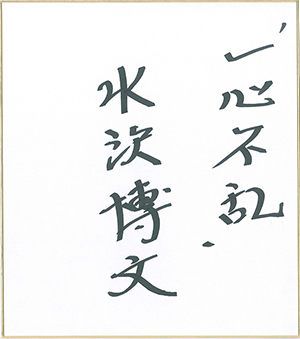 一心不乱
水沢博文